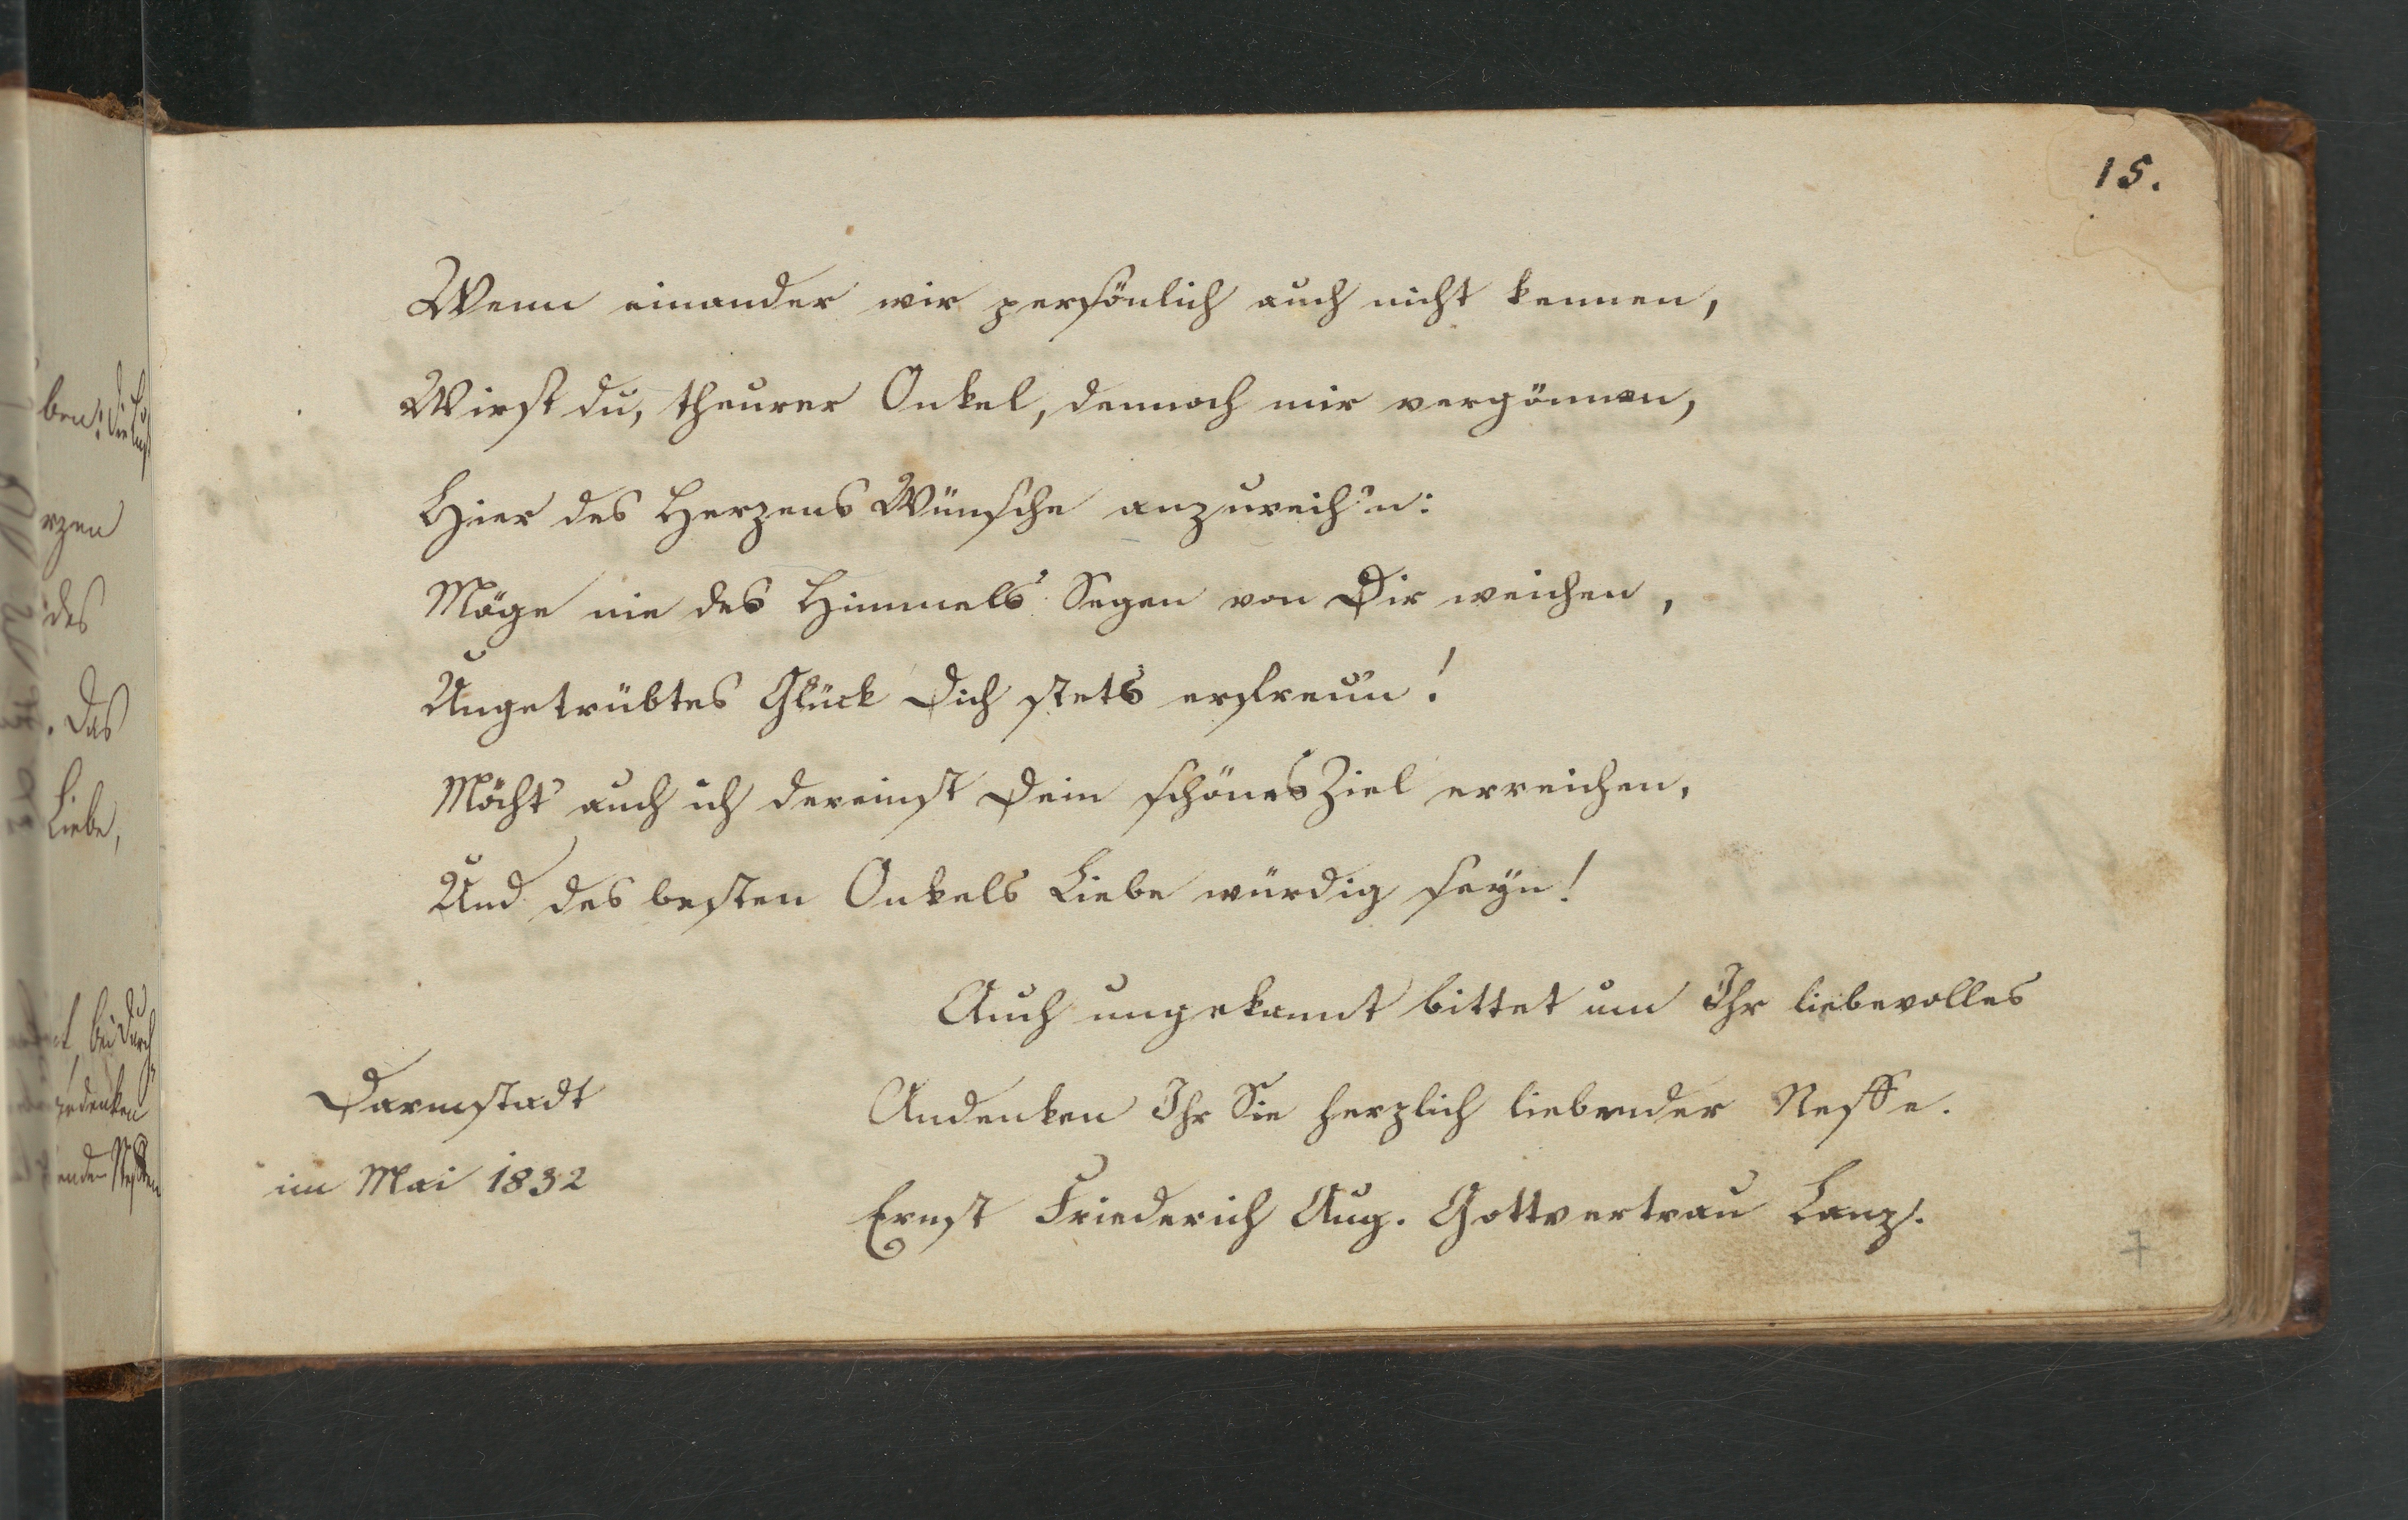 15.
Wenn einander wir persönlich auch nicht kennen,
Wirst du, theurer Onkel, dennoch mir vergönnen,
Hier des Herzens Wünsche anzureih'n:
Möge nie des Himmels Segen von Dir weichen,
Ungetrübtes Glück Dich stets erfreu'n!
Möcht' auch ich dereinst Dein schönes Ziel erreichen,
Und des besten Onkels Liebe würdig seyn!
Auch ungekannt bittet um Ihr liebevolles
Andenken Ihr Sie herzlich liebender Neffe.
Ernst Friederich Aug. Gottvertrau Lanz.
Darmstadt
im Mai 1832
7
ben!
rzen
des
. Das
Liebe,